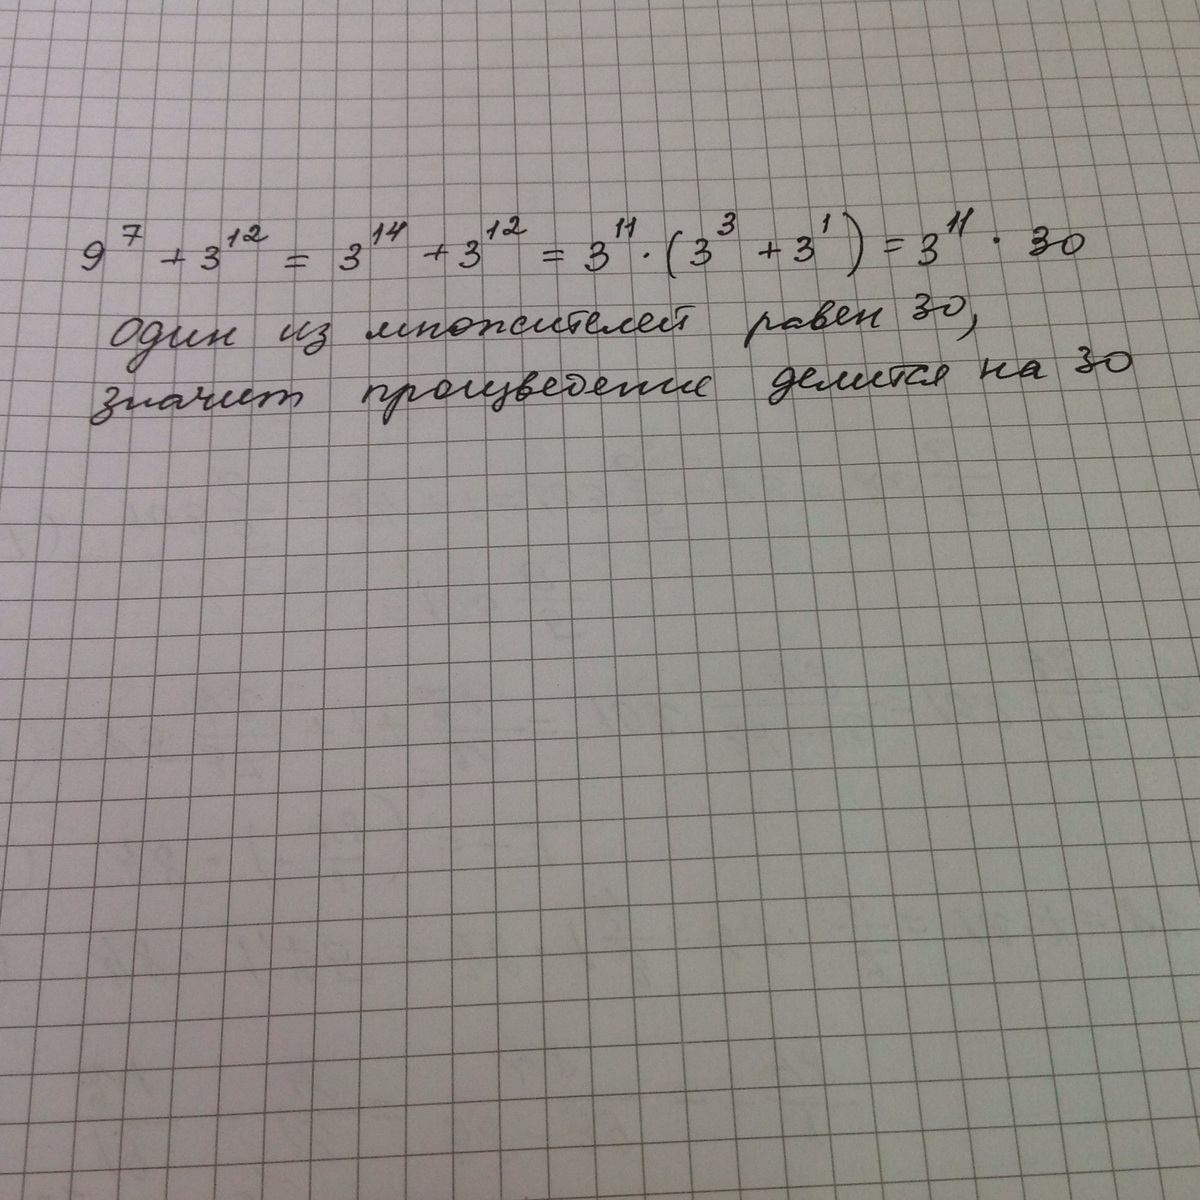 9⁷ + 3¹² = 3¹⁴ + 3¹² = 3¹¹ · (3³ + 3¹) = 3¹¹ · 30
один из множителей равен 30,
значит произведение делится на 30